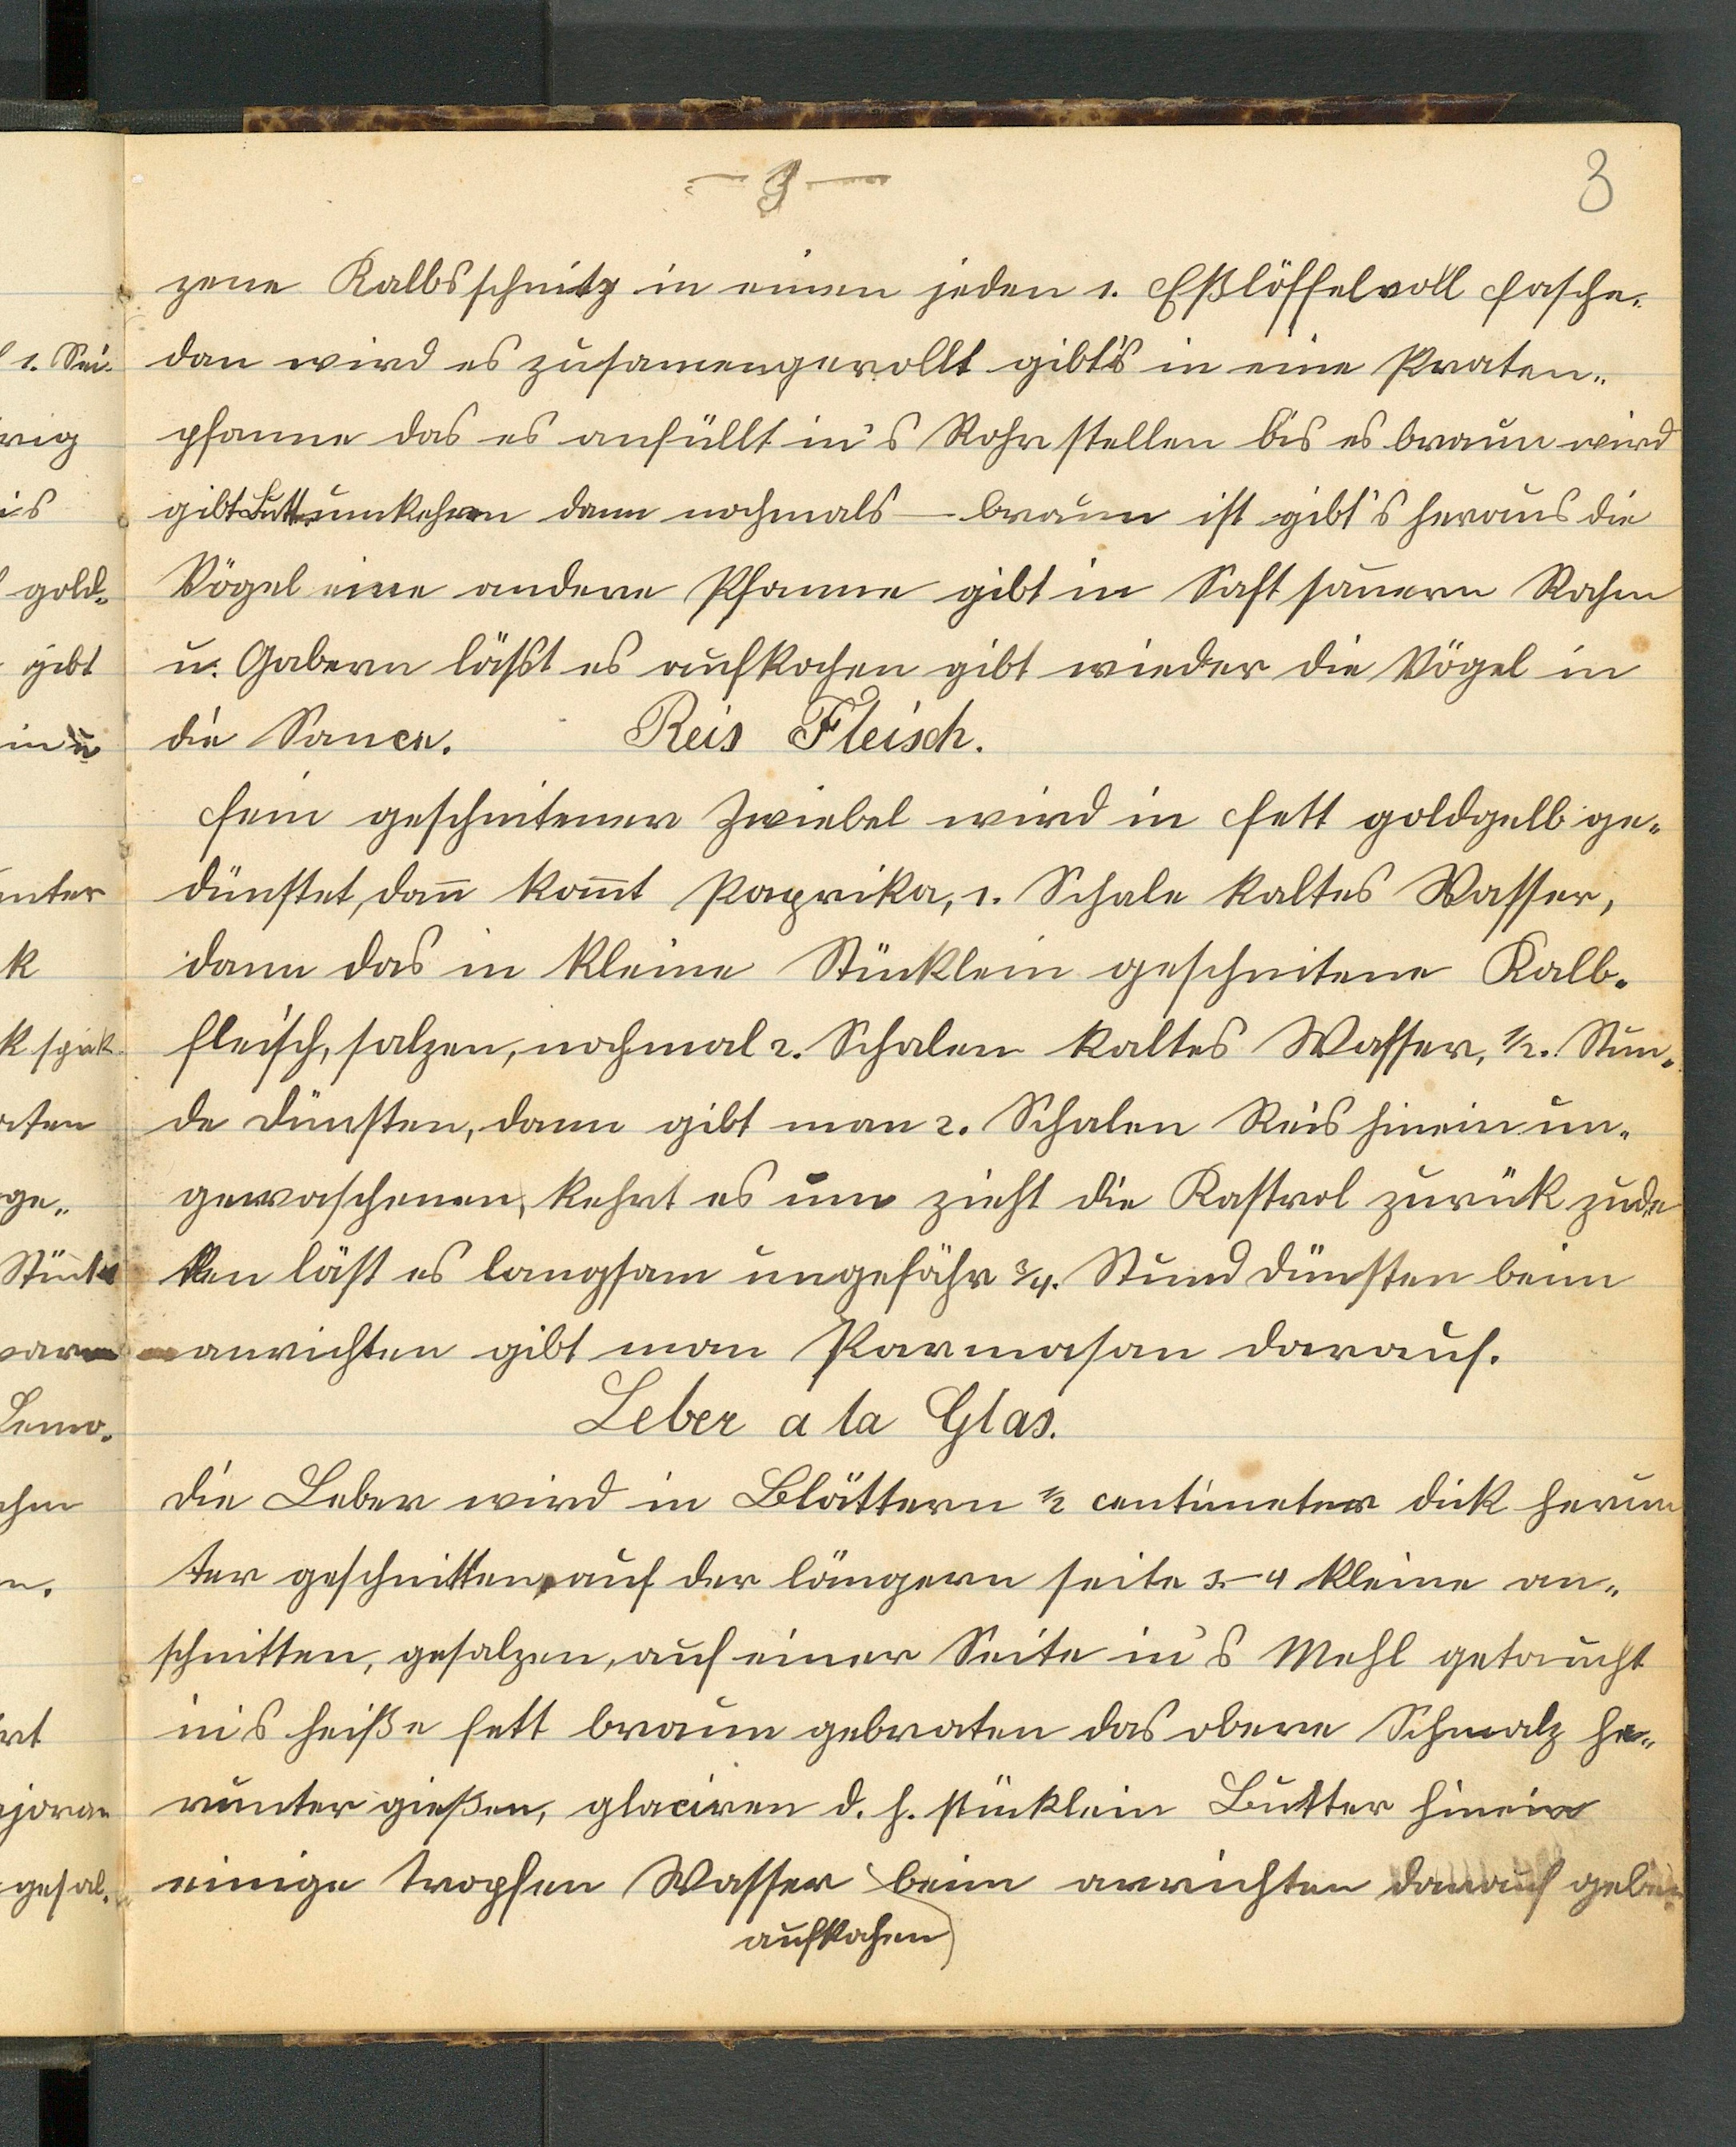 - 3 -
3
zene Kalbsschnitz in einen jeden 1. Eßlöffelvoll Fasche.
dan wird es zusamengerollt gibt's in eine Praten„
pfanne das es anfüllt in's Rohr stellen bis es braun wird
gibt Butt. umkehren dann nochmals - braun ist gibt's heraus die
Vögel eine andere Pfanne gibt in Saft sauern Rahm
u. Gabern läßt es aufkochen gibt wieder die Vögel in
die Sauce. Reis Fleisch.
Fein geschnitener Zwiebel wird in Fett goldgelb ge„
dünstet, dan̄ kom̄t Paprika, 1. Schale kaltes Wasser,
dann das in kleine Stücklein geschnitene Kalb„
fleisch, salzen, nochmal 2. Schalen kaltes Wasser, ½. Stun„
de dünsten, dann gibt man 2. Schalen Reis hinein un„
gewaschenen, kehrt es um zieht die Kastrol zurük zude
ken läst es langsam ungefähr ¾. Stund dünsten beim
anrichten gibt man Parmasan darauf.
Leber a la Glas.
die Leber wird in Blättern ½ centimeter dick herun
ter geschnitten, auf der längern seite 3-4 kleine an„
schnitten, gesalzen, auf einer Seite in's Mehl getaucht
in's heiße fett braun gebraten das obere Schmalz he„
runter gießen, glaciren d. h. stücklein Butter hinein
einige tropfen Wasser beim anrichten darauf geben.
aufkochen
1. Sei.
rig
is
gold„
gibt
in u
unter
k
ge„
Stück
warm
Lemo„
n.
rt
ajoran
gesal„